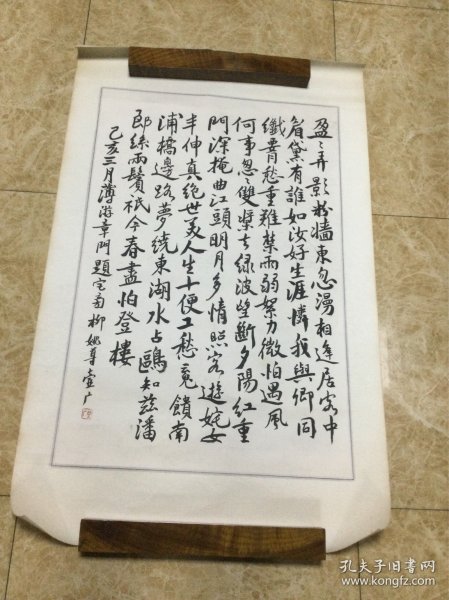 盈〻弄影粉墙東忽漫相逢居客中
眉黛有誰如汝好生涯憐我與卿同
纖青愁重難禁雨弱絮力微怕遇風
何事忽〻雙槳去綠波望斷夕陽紅重
門深掩曲江頭明月多情照客遊姹女
半伸真絶世美人生十便工愁竟饋南
浦橋邊路夢绕東湖水占鷗知兹潘
郎絲兩鬢祇今春盡怕登樓
己亥三月薄游章門題宅南柳姚尊壹广
孔夫子旧書网
www.kongfz.com